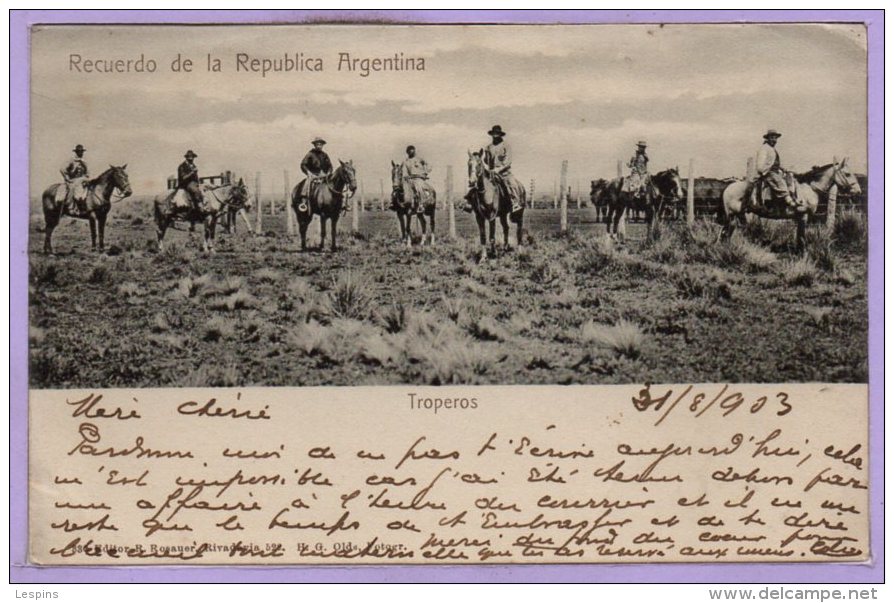 Recuerdo de la Republica Argentina
Troperos
31/8/903
Merè chérie
Pardonne moi de ne pas t'écrire aujourd'hui, cela
m'est impossible car j'ai été tenu dehors par
une affaire à l'heure du courrier et il ne me
reste que le temps de t'embrasser et de te dire
merci du fond du coeur pour
elle que tu as réservé aux miens.
Editor R. Rosauer, Rivadavia 52 H. G. Olds, Fotogr.
Lespins
www.delcampe.net